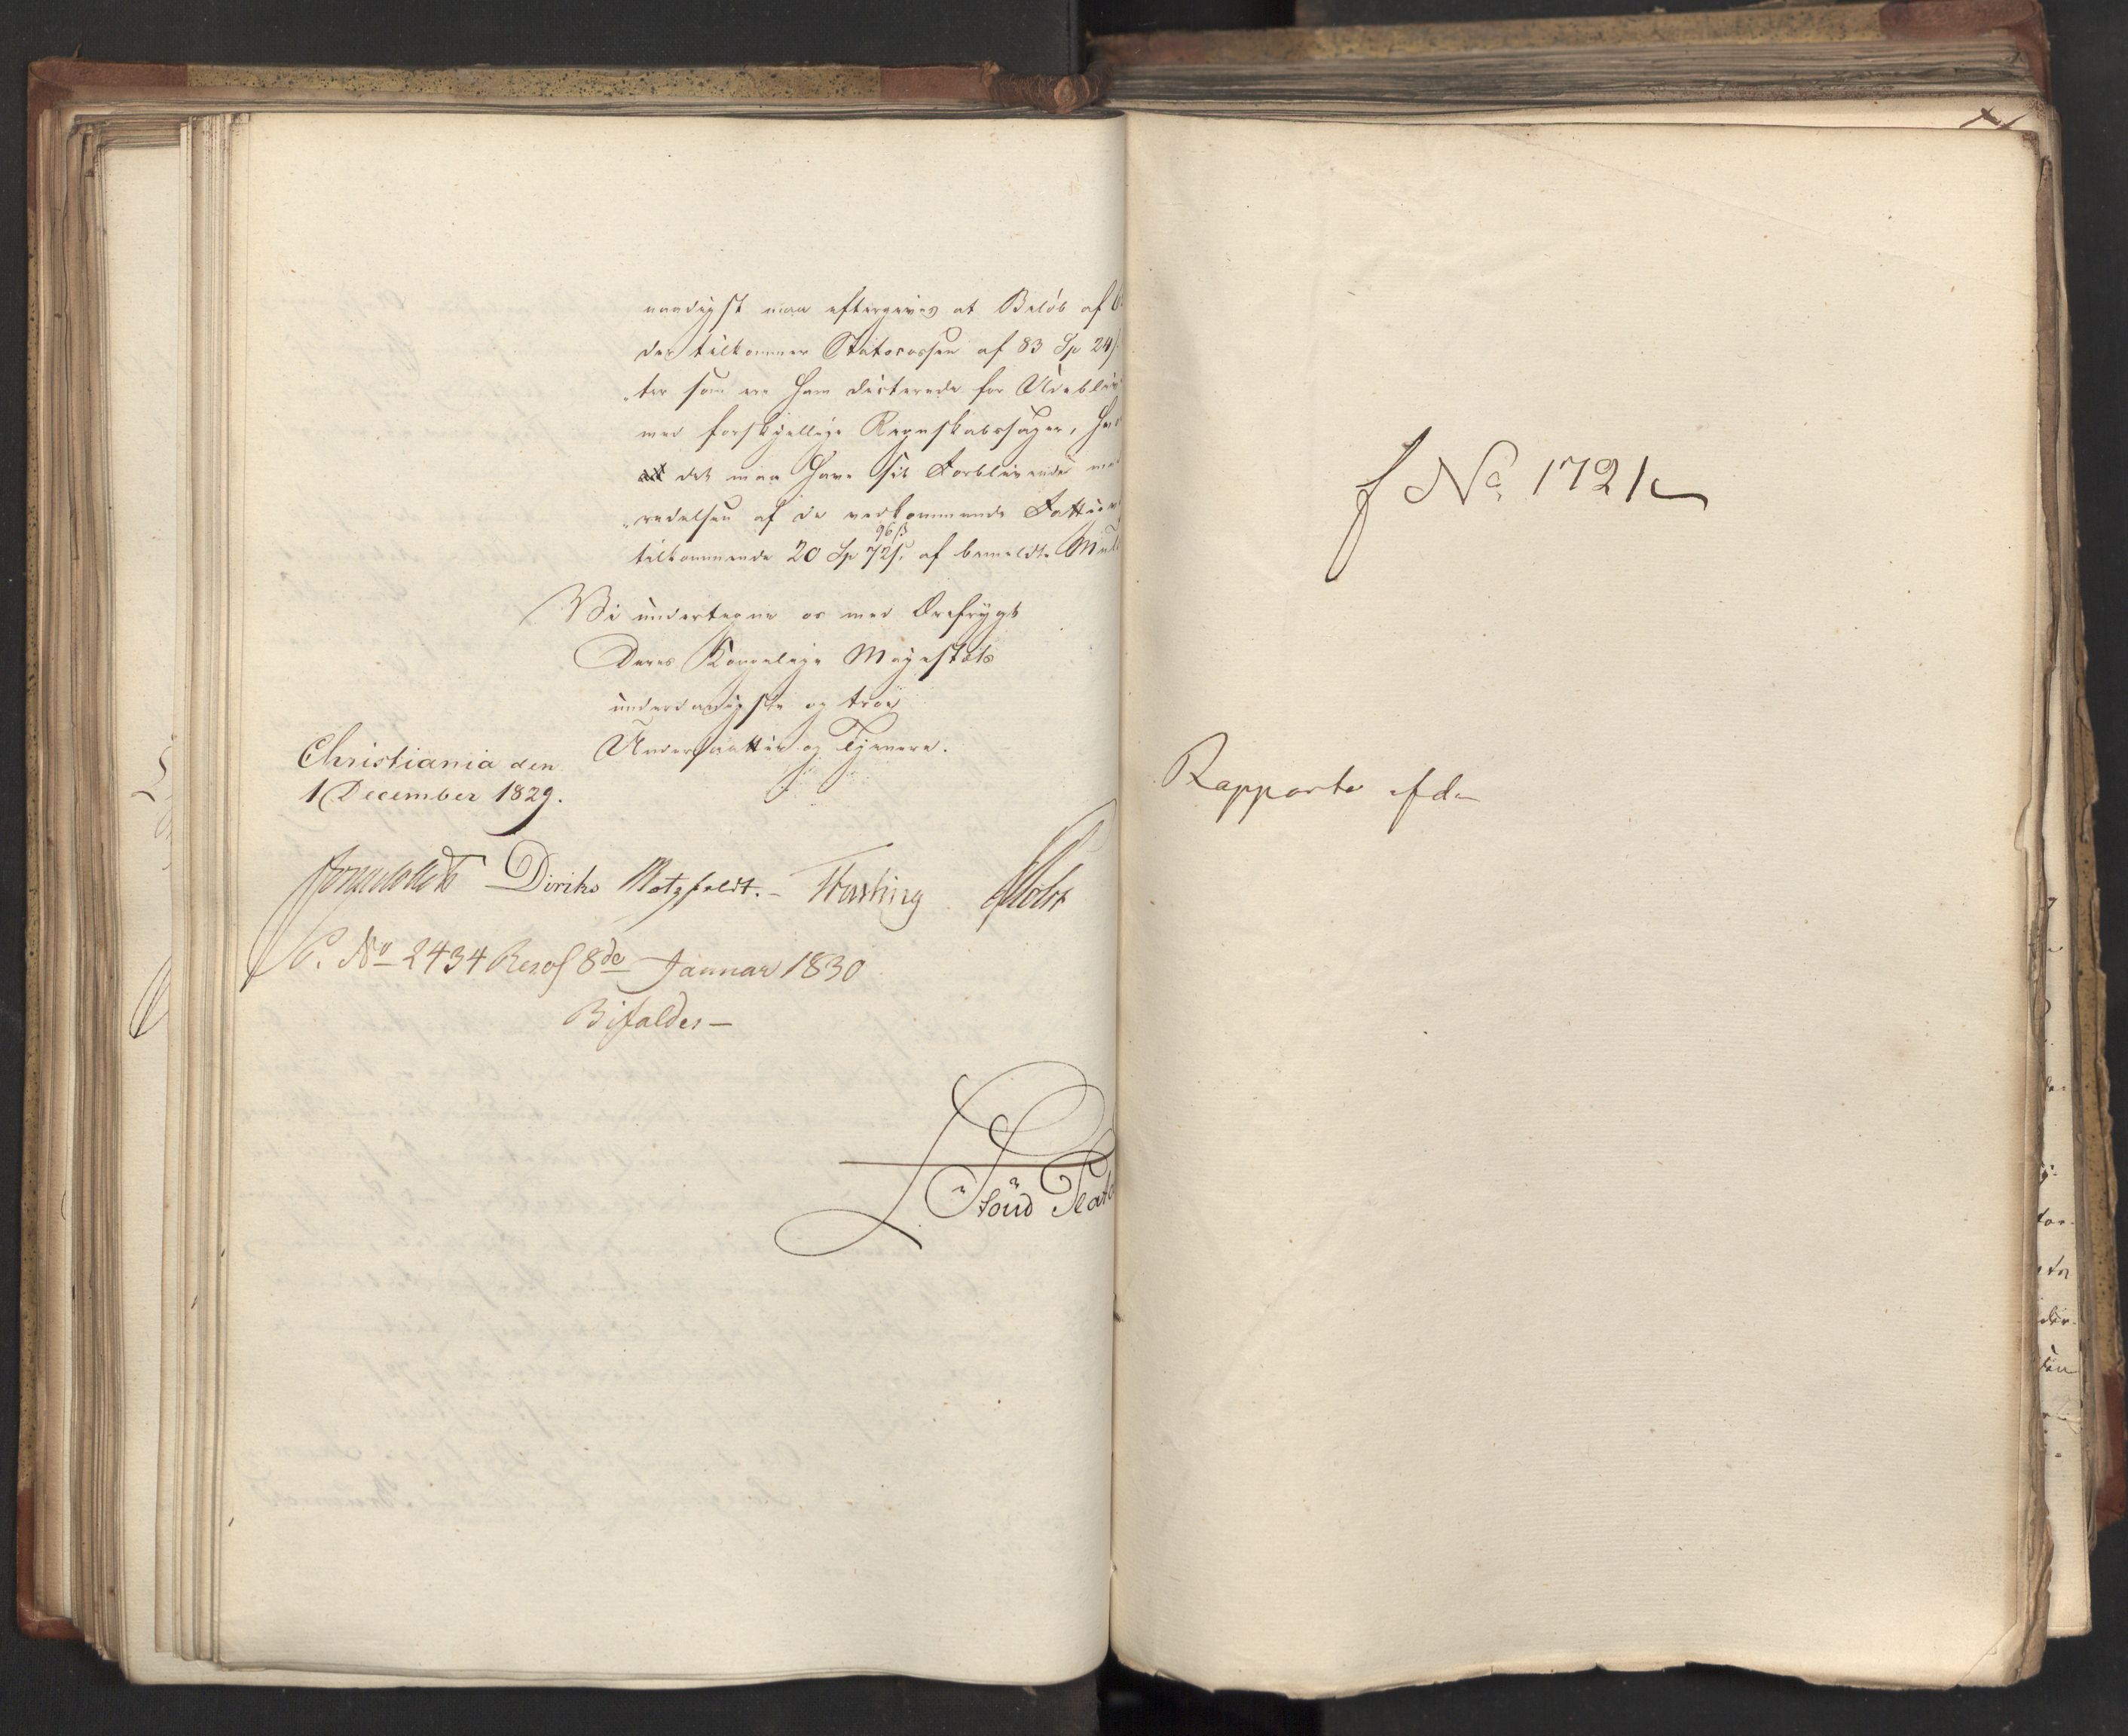 naadigst maa eftergives et Beløb af
der tilkommer Statscassen af 83 Sp 24 s
ter som ere ham dicterede for Udeblive
med forskjellige Regnskabssager, hvor
det maa have sit Forblivende med
redelsen af de vedkommende Fattige
96 ß
tilkommende 20 Sp 72 s. af bemeldte Mul
Vi undertegne os med Ærefrygt
Deres Kongelige Majestæts
underdanigste og troe
Undersaatter og Tjenere.
Christiania den
1 December 1829.
Diriks Motzfeldt. - Fasting
C. No 2434 Resol 8de Januar 1830
Bifaldes -
f No. 1721
Rapporte